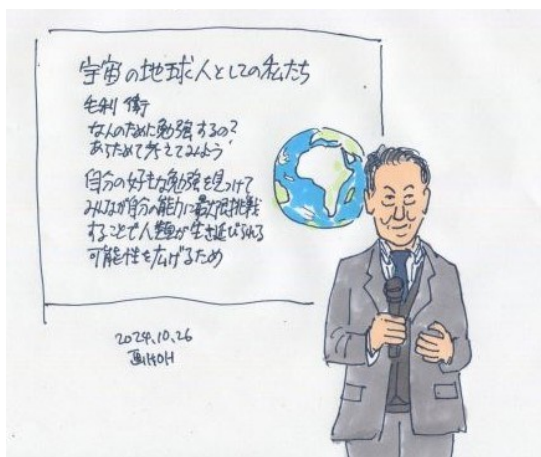 宇宙の地球人としての私たち
毛利 衛
なんのために勉強するの?
あらためて考えてみよう
自分の好きな勉強を見つけて
みんなが自分の能力に最大限挑戦
することで人類が生き延びられる
可能性を広げるため
2024.10.26
画